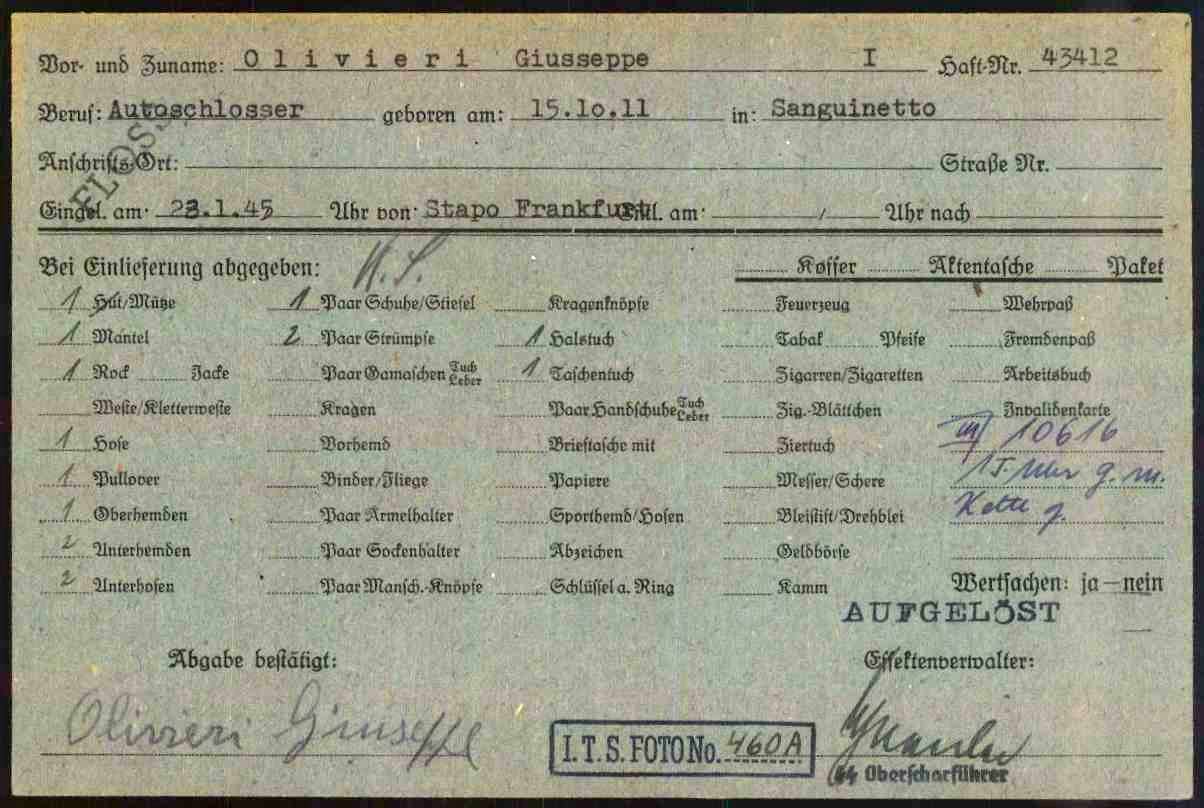 Vor- und Zuname: Olivieri Giusseppe I Haft-Nr. 43412
Beruf: Autoschlosser geboren am: 15.10.11 in: Sanguinetto
Anschrifts-Ort: Straße Nr.
FLOSS
Eingel. am: 23.1.45 Uhr von: Stapo Frankfurt Entl. am: / Uhr nach
Bei Einlieferung abgegeben: Koffer Aktentasche Paket
1 Hut/Mütze 1 Paar Schuhe/Stiefel Kragenknöpfe Feuerzeug Wehrpaß
1 Mantel 2 Paar Strümpfe 1 Halstuch Tabak Pfeife Fremdenpaß
1 Rock Jacke Paar Gamaschen Tuch Leder 1 Taschentuch Zigarren/Zigaretten Arbeitsbuch
Weste/Kletterweste Kragen Paar Handschuhe Tuch Leder Zig.-Blättchen Invalidenkarte
1 Hose Vorhemd Brieftasche mit Ziertuch 10616
1 Pullover Binder/Fliege Papiere Messer/Schere 1 T. Uhr g. m.
1 Oberhemden Paar Ärmelhalter Sporthemd/Hosen Bleistift/Drehblei Kette g.
2 Unterhemden Paar Sockenhalter Abzeichen Geldbörse
2 Unterhosen Paar Mansch.-Knöpfe Schlüssel a. Ring Kamm Wertsachen: ja — nein
AUFGELÖST
Abgabe bestätigt: Effektenverwalter:
Olivieri Giuseppe
I.T.S. FOTO No. 460A
SS Oberscharführer